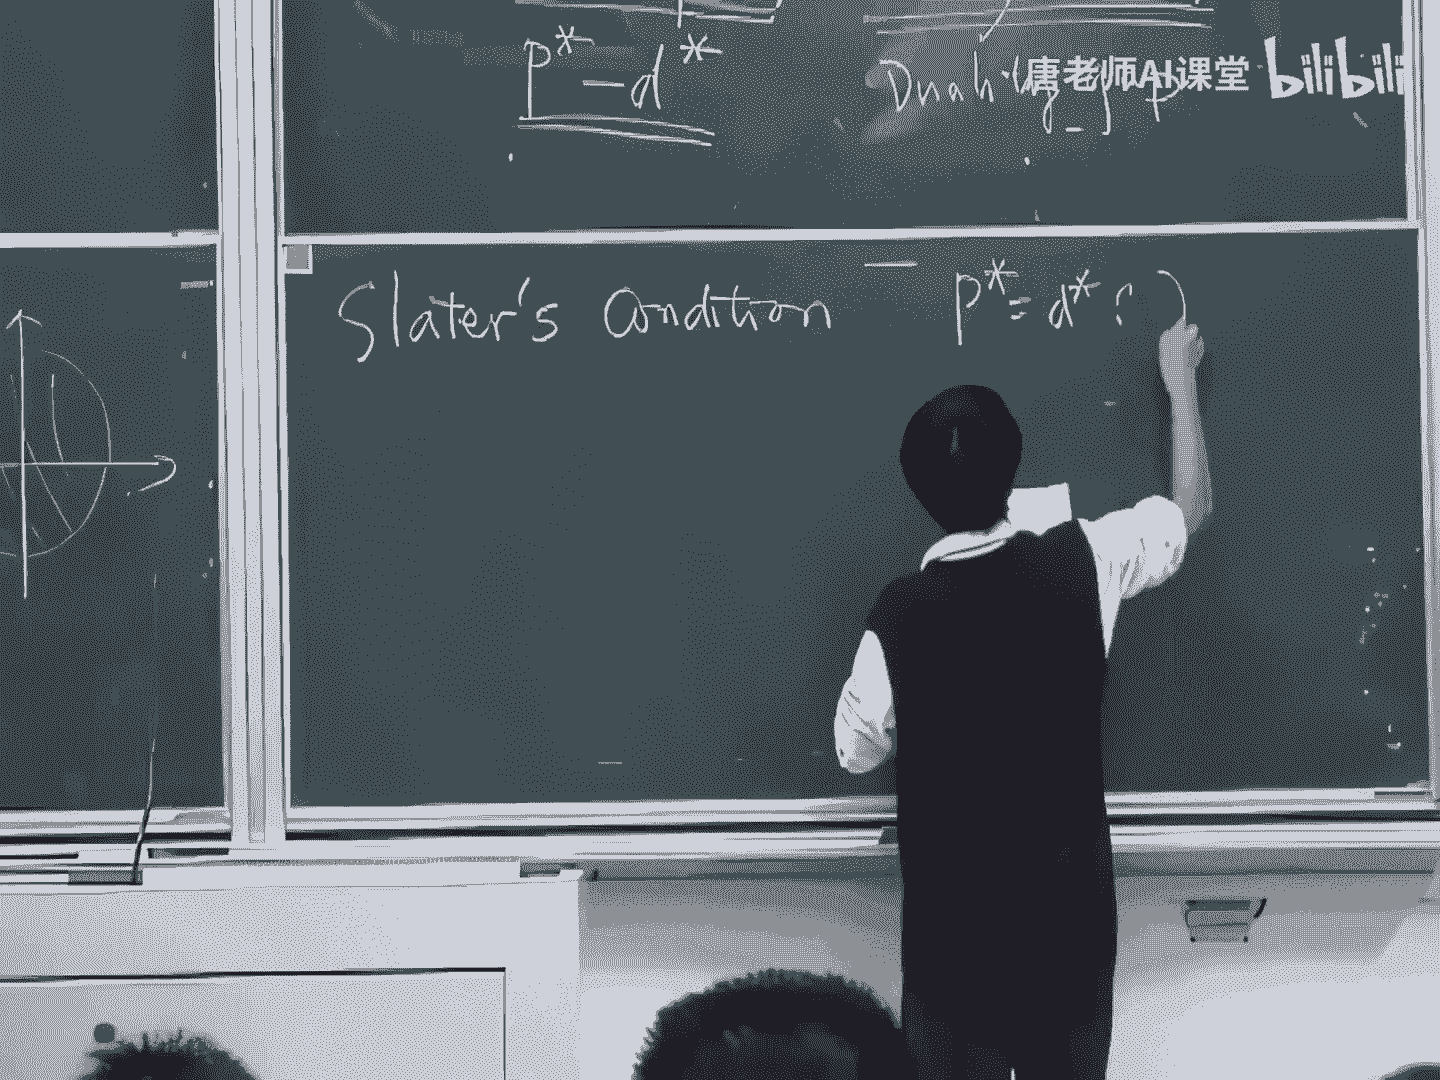 p* - d*
Duality gap
唐老师AI课堂 bilibili
Slater's Condition p* = d* ?